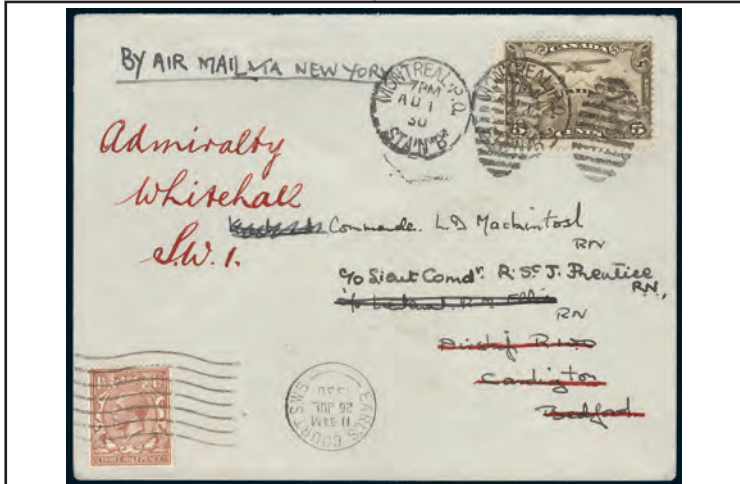 BY AIR MAIL VIA NEW YORK
MONTREAL, P.Q.
7PM
AU 1
30
STA'N "B"
CANADA
5 CENTS 5
Admiralty
Whitehall
S.W.1.
Commander L.D Mackintosh
RN
c/o Lieut Comdr. R. St J. Prentice
RN,
RN
R100
Cardington
Bedford
EARL'S COURT S.W.5
11 AM
26 JUL
1930
THREE HALF PENCE